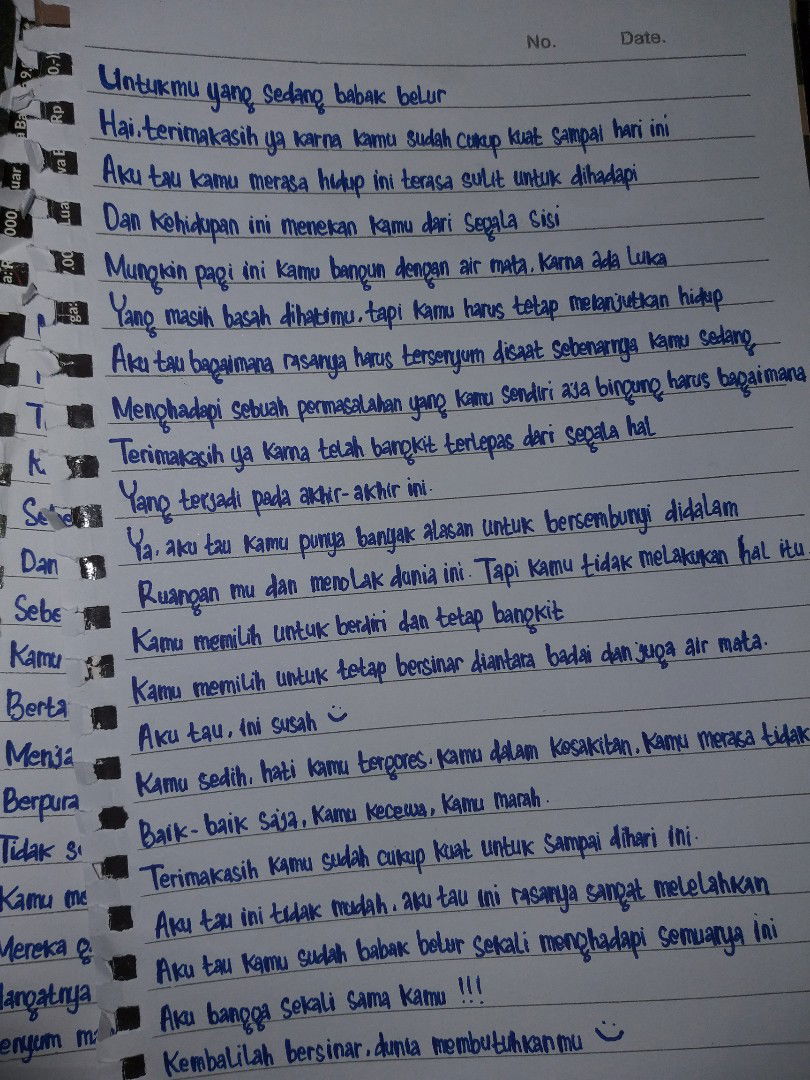 No. Date.
Untukmu yang sedang babak belur
Hai, terimakasih ya karna kamu sudah cukup kuat sampai hari ini
Aku tau kamu merasa hidup ini terasa sulit untuk dihadapi
Dan Kehidupan ini menekan kamu dari segala sisi
Mungkin pagi ini kamu bangun dengan air mata, karna ada luka
Yang masih basah dihatimu, tapi kamu harus tetap melanjutkan hidup
Aku tau bagaimana rasanya harus tersenyum disaat sebenarnya kamu sedang
Menghadapi sebuah permasalahan yang kamu sendiri aja bingung harus bagaimana
Terimakasih ya karna telah bangkit terlepas dari segala hal
Yang terjadi pada akhir-akhir ini.
Ya, aku tau kamu punya banyak alasan untuk bersembunyi didalam
Ruangan mu dan menolak dunia ini. Tapi kamu tidak melakukan hal itu
Kamu memilih untuk berdiri dan tetap bangkit
Kamu memilih untuk tetap bersinar diantara badai dan juga air mata.
Aku tau, ini susah
Kamu sedih, hati kamu tergores, kamu dalam kesakitan, kamu merasa tidak
Baik-baik saja, kamu kecewa, kamu marah.
Terimakasih kamu sudah cukup kuat untuk sampai dihari ini.
Aku tau ini tidak mudah, aku tau ini rasanya sangat melelahkan
Aku tau kamu sudah babak belur sekali menghadapi semuanya ini
Aku bangga sekali sama kamu !!!
Kembalilah bersinar, dunia membutuhkanmu
Dan
Sebe
Kamu
Berta
Menja
Berpura
Tidak
Kamu me
Mereka
enyum